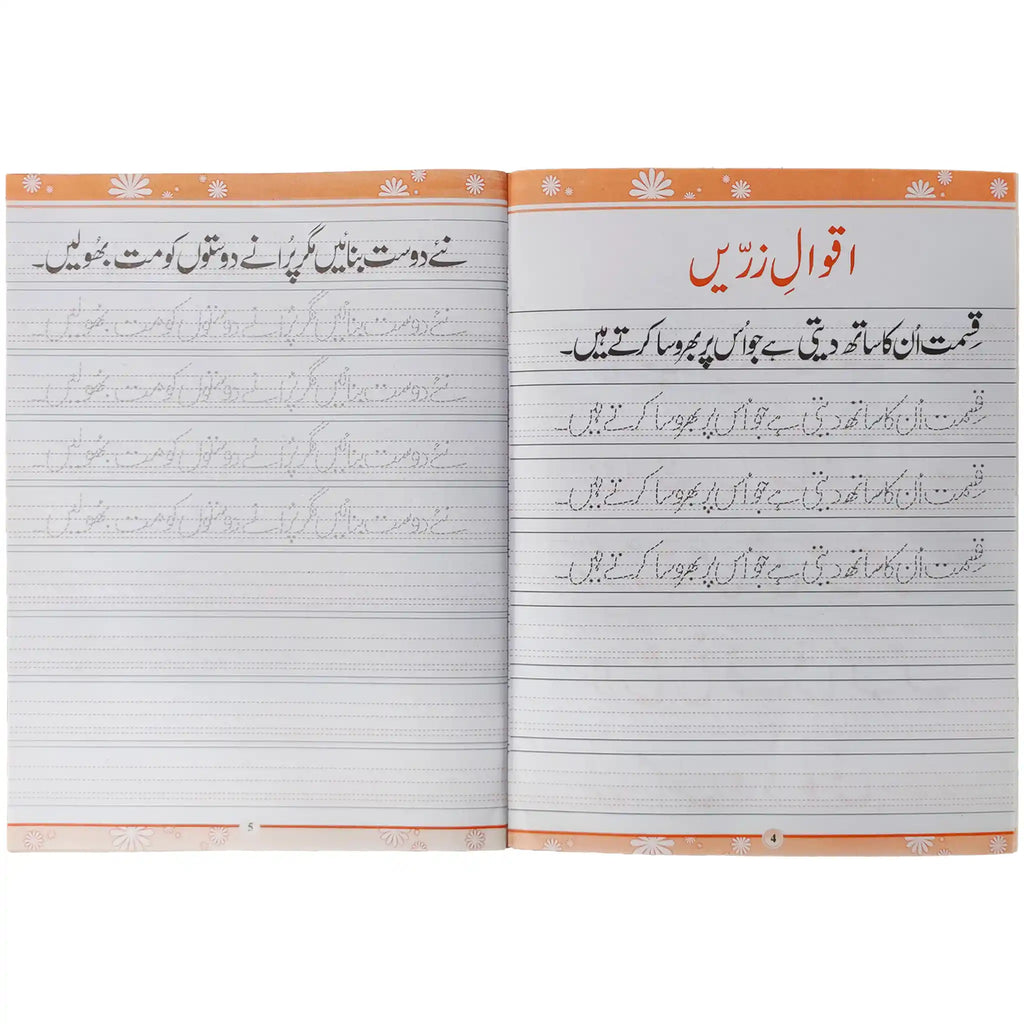 اقوالِ زرّیں
قِسمت اُن کا ساتھ دیتی ہے جو اُس پر بھروسا کرتے ہیں۔
قِسمت اُن کا ساتھ دیتی ہے جو اُس پر بھروسا کرتے ہیں۔
قِسمت اُن کا ساتھ دیتی ہے جو اُس پر بھروسا کرتے ہیں۔
قِسمت اُن کا ساتھ دیتی ہے جو اُس پر بھروسا کرتے ہیں۔
4
نئے دوست بنائیں مگر پُرانے دوستوں کو مت بھُولیں۔
نئے دوست بنائیں مگر پُرانے دوستوں کو مت بھُولیں۔
نئے دوست بنائیں مگر پُرانے دوستوں کو مت بھُولیں۔
نئے دوست بنائیں مگر پُرانے دوستوں کو مت بھُولیں۔
نئے دوست بنائیں مگر پُرانے دوستوں کو مت بھُولیں۔
5